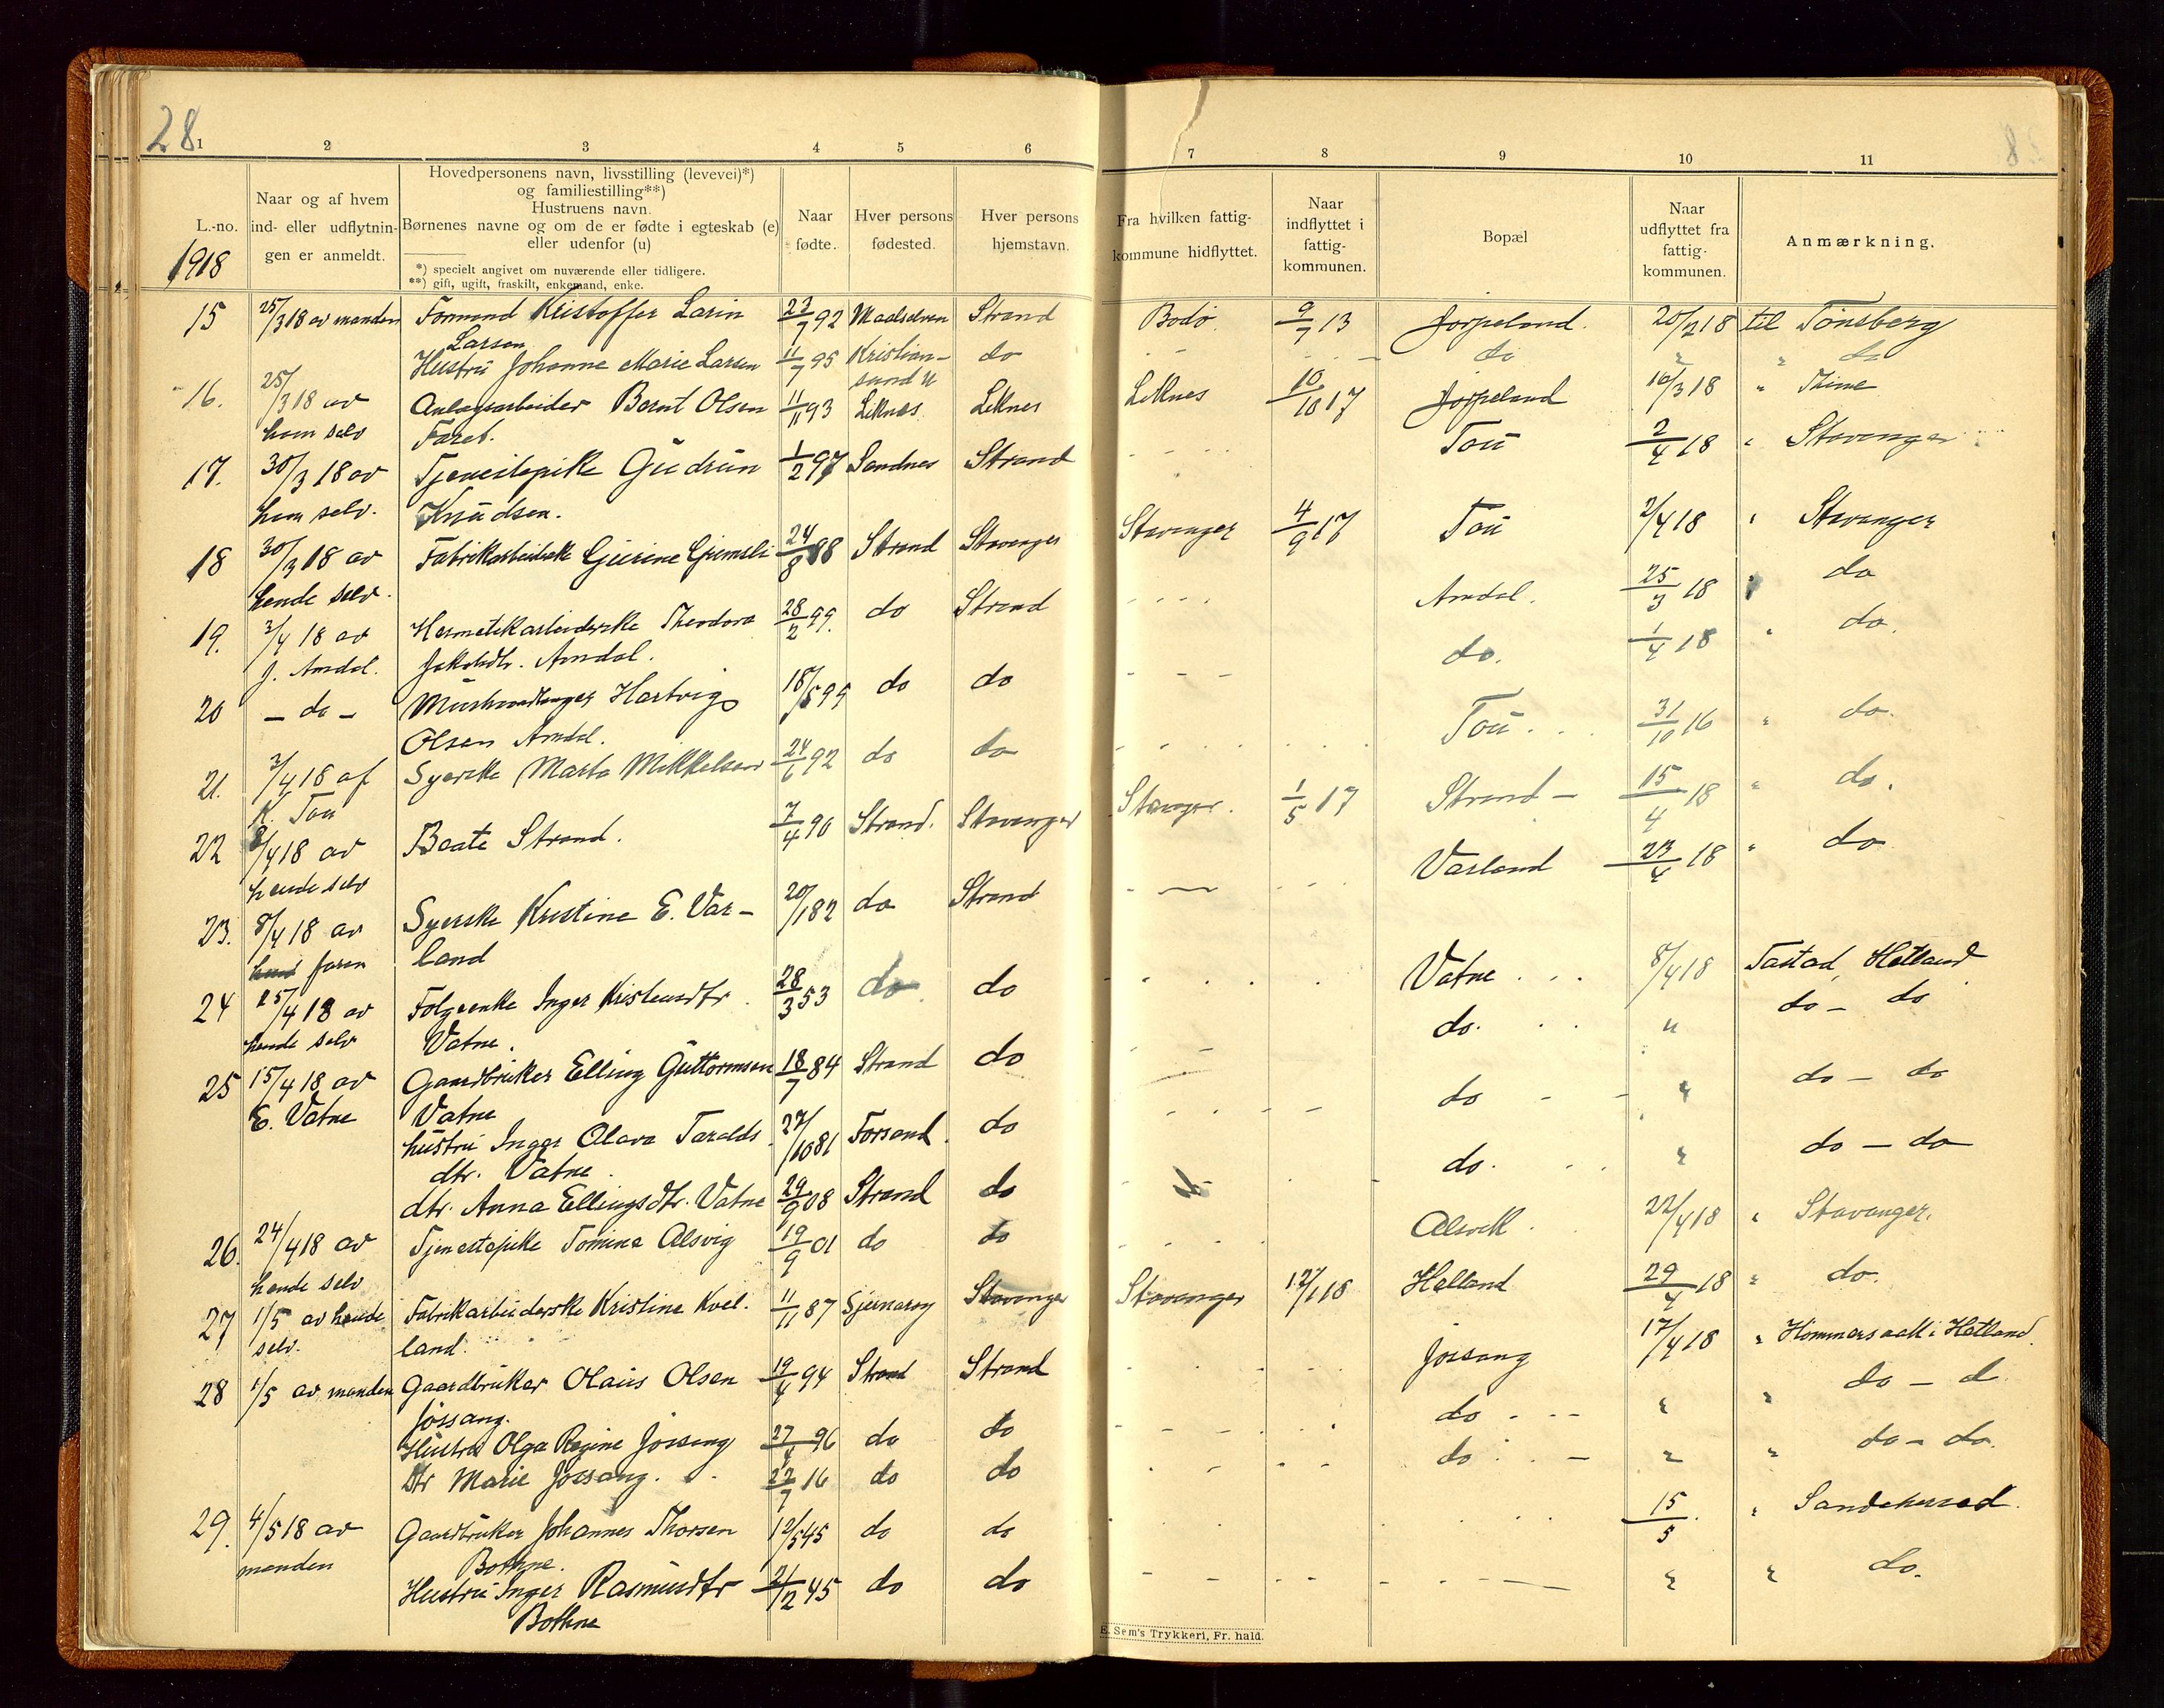 28
1 2 3 4 5 6 7 8 9 10 11
L.-no.
1918
Naar og af hvem
ind- eller udflytnin-
gen er anmeldt.
Hovedpersonens navn, livsstilling (levevei)*)
og familiestilling**)
Hustruens navn.
Børnenes navne og om de er fødte i egteskab (e)
eller udenfor (u)
*) specielt angivet om nuværende eller tidligere.
**) gift, ugift, fraskilt, enkemand, enke.
Naar
fødte.
Hver persons
fødested.
Hver persons
hjemstavn.
Fra hvilken fattig-
kommune hidflyttet.
Naar
indflyttet i
fattig-
kommunen.
Bopæl
Naar
udflyttet fra
fattig-
kommunen.
Anmærkning.
15 25/3 18 av manden Formand Kristoffer Larin 23/7 92 Maalselven Strand Bodø 9/7 13 Jørpeland. 20/2 18 til Tønsberg
Larsen
Hustru Johanne Marie Larsen 11/7 95 Kristian- do - - - - do " " do
sund N
16. 25/3 18 av Anlægsarbeider Bernt Olsen 11/11 93 Liknes Liknes Liknes 10/10 17 Jørpeland 16/3 18 " Time
ham selv Faret.
17. 30/3 18 av Tjenestepike Gudrun 1/2 97 Sandnes Strand - - - - Tou 2/4 18 " Stavanger
ham selv. Knudsen.
18 30/3 18 av Fabrikarbeiderske Gurine Grimsli 24/8 88 Strand Stavanger Stavanger 4/9 17 Tou 2/4 18 " Stavanger
hende selv.
19. 3/4 18 av Hermetikarbeiderske Theodora 28/2 99. do Strand - - - Amdal. 25/3 18 " do
J. Amdal. Jakobdtr. Amdal.
20 - do - Murhandlanger Hartvig 18/5 99 do do - - - do. 1/4 18 " do.
Olsen Amdal.
21. 3/4 18 af Syerske Marta Mikkelsen 24/6 92 do do - - - - Tou 31/10 16 " do.
K. Tou
22 8/4 18 av Beate Strand. 7/4 90 Strand. Stavanger Stavanger. 1/5 17 Strand - 15/4 18 " do.
hende selv
23. 8/4 18 av Syerske Kristine E. Var- 20/1 82 do Strand - - - - Varland 23/4 18 " do
faren land
24 15/4 18 av Følgeenke Inger Kristensdtr. 28/3 53 do do - - - - Vatne 8/4 18 Tastad, Hetland
hende selv Vatne.
25 15/4 18 av Gaardbruker Elling Guttormsen 18/7 84 Strand do - - do. " do - do
E. Vatne Vatne
hustru Inger Olava Taralds 27/10 81 Forsand. do - - - - do - - " do - do
dtr. Vatne.
dtr. Anna Ellingsdtr. Vatne 29/9 08 Strand do - do. " do - do
26. 24/4 18 av Tjenestepike Tomine Alsvig 19/9 01 do do - - - - Alsvik. 22/4 18 " Stavanger.
hende selv
27 1/5 av hende Fabrikarbeiderske Kristine Kvel- 11/11 87 Sjernarøy Stavanger Stavanger 12/1 18 Helland 29/4 18 " do.
selv. land.
28 1/5 av manden Gaardbruker Olaus Olsen 19/4 94 Strand Strand - - - - Jøssang 17/4 18 " Hommersaak i Hetland.
Jøssang.
Hustru Olga Regine Jøssang 27/4 96 do do - - - - do - - " " do - d
Dtr Marie Jøssang. 22/7 16 do do - - - - do - " " do - do.
29. 4/5 18 av Gaardbruker Johannes Thorsen 12/5 45 do do 15/5 " Sandeherred.
manden Bothne.
Hustru Inger Rasmusdtr 21/2 45 do do - - - - - " " do.
Bothne
E. Sem's Trykkeri, Fr. hald.